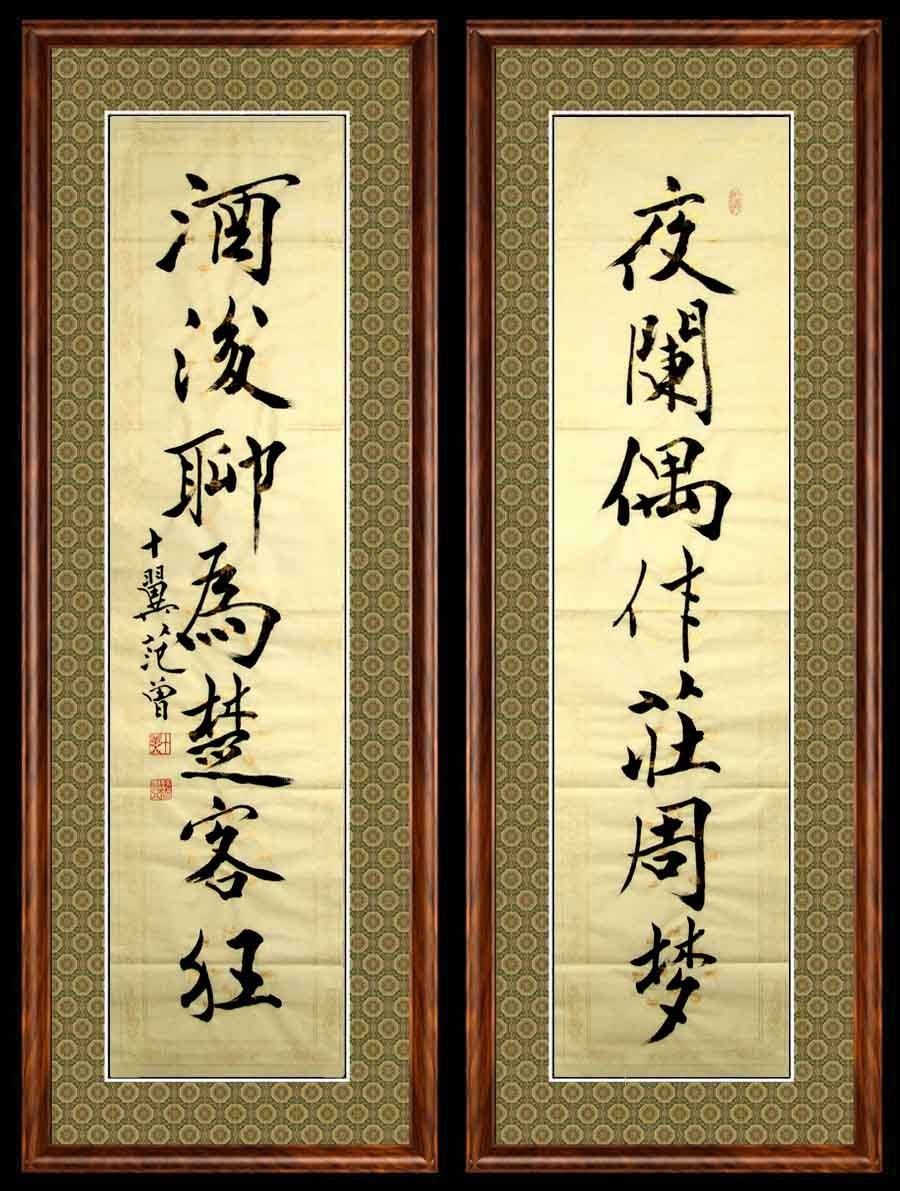 夜闌偶作莊周梦
酒後聊為楚客狂
十翼范曾